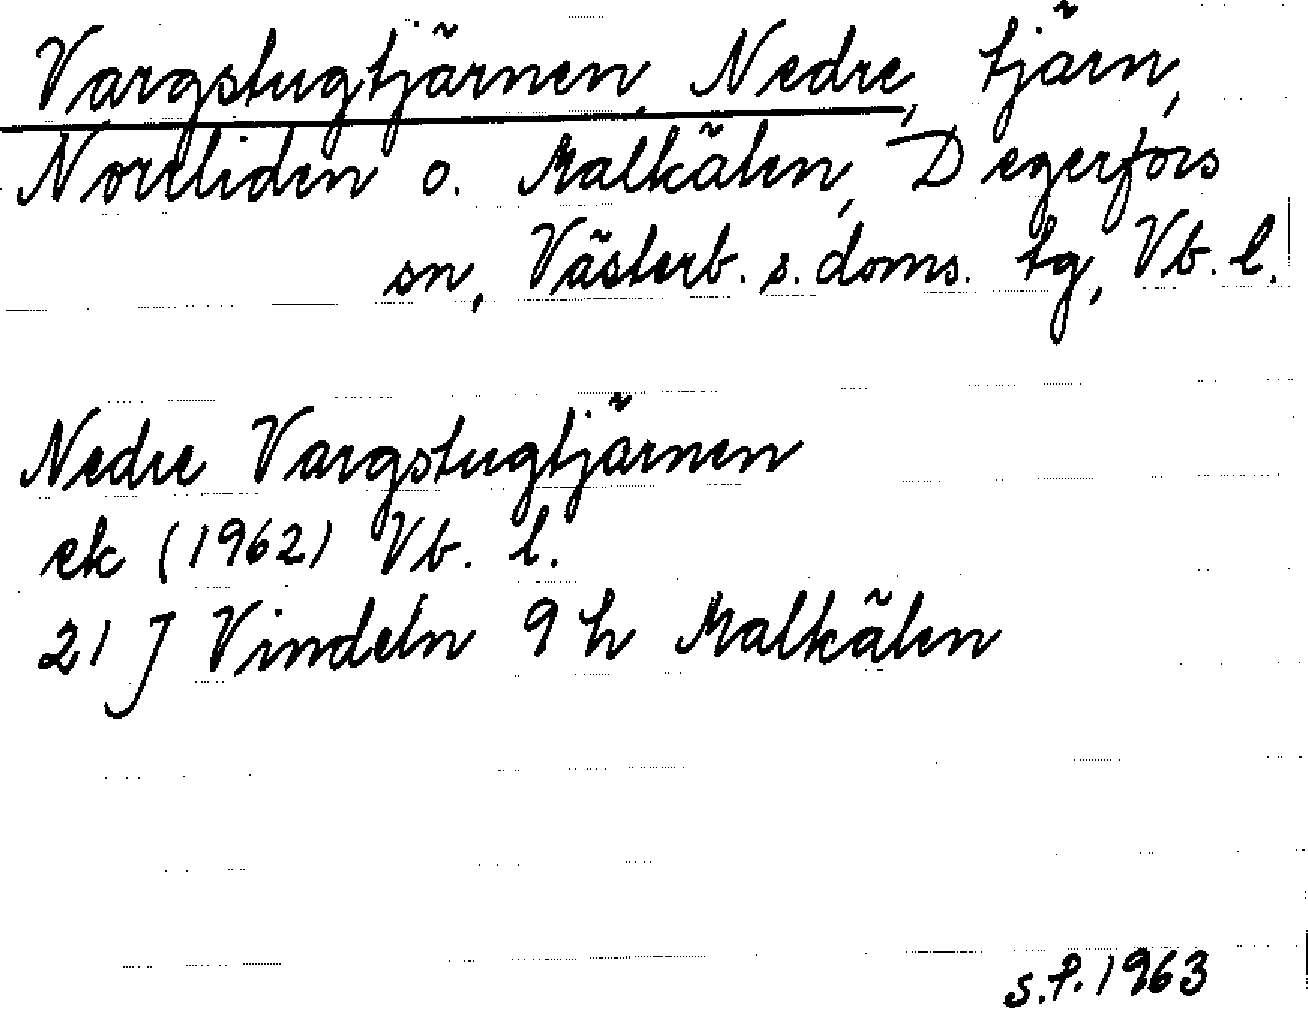 Vargstugtjärnen, Nedre, tjärn,
Norrliden o. Malkälen, Degerfors
sn, Västerb. s. doms. tg, Vb. l.
Nedre Vargstugtjärnen
ek (1962) Vb. l.
21 J Vindeln 9 h Malkälen
s.f. 1963